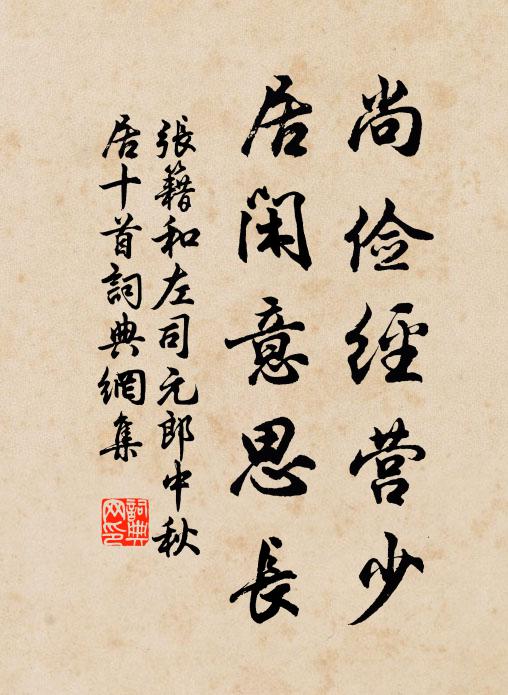 尚俭經营少
居闲意思長
張籍和左司元郎中秋
居十首詞典網集
詞典
网印